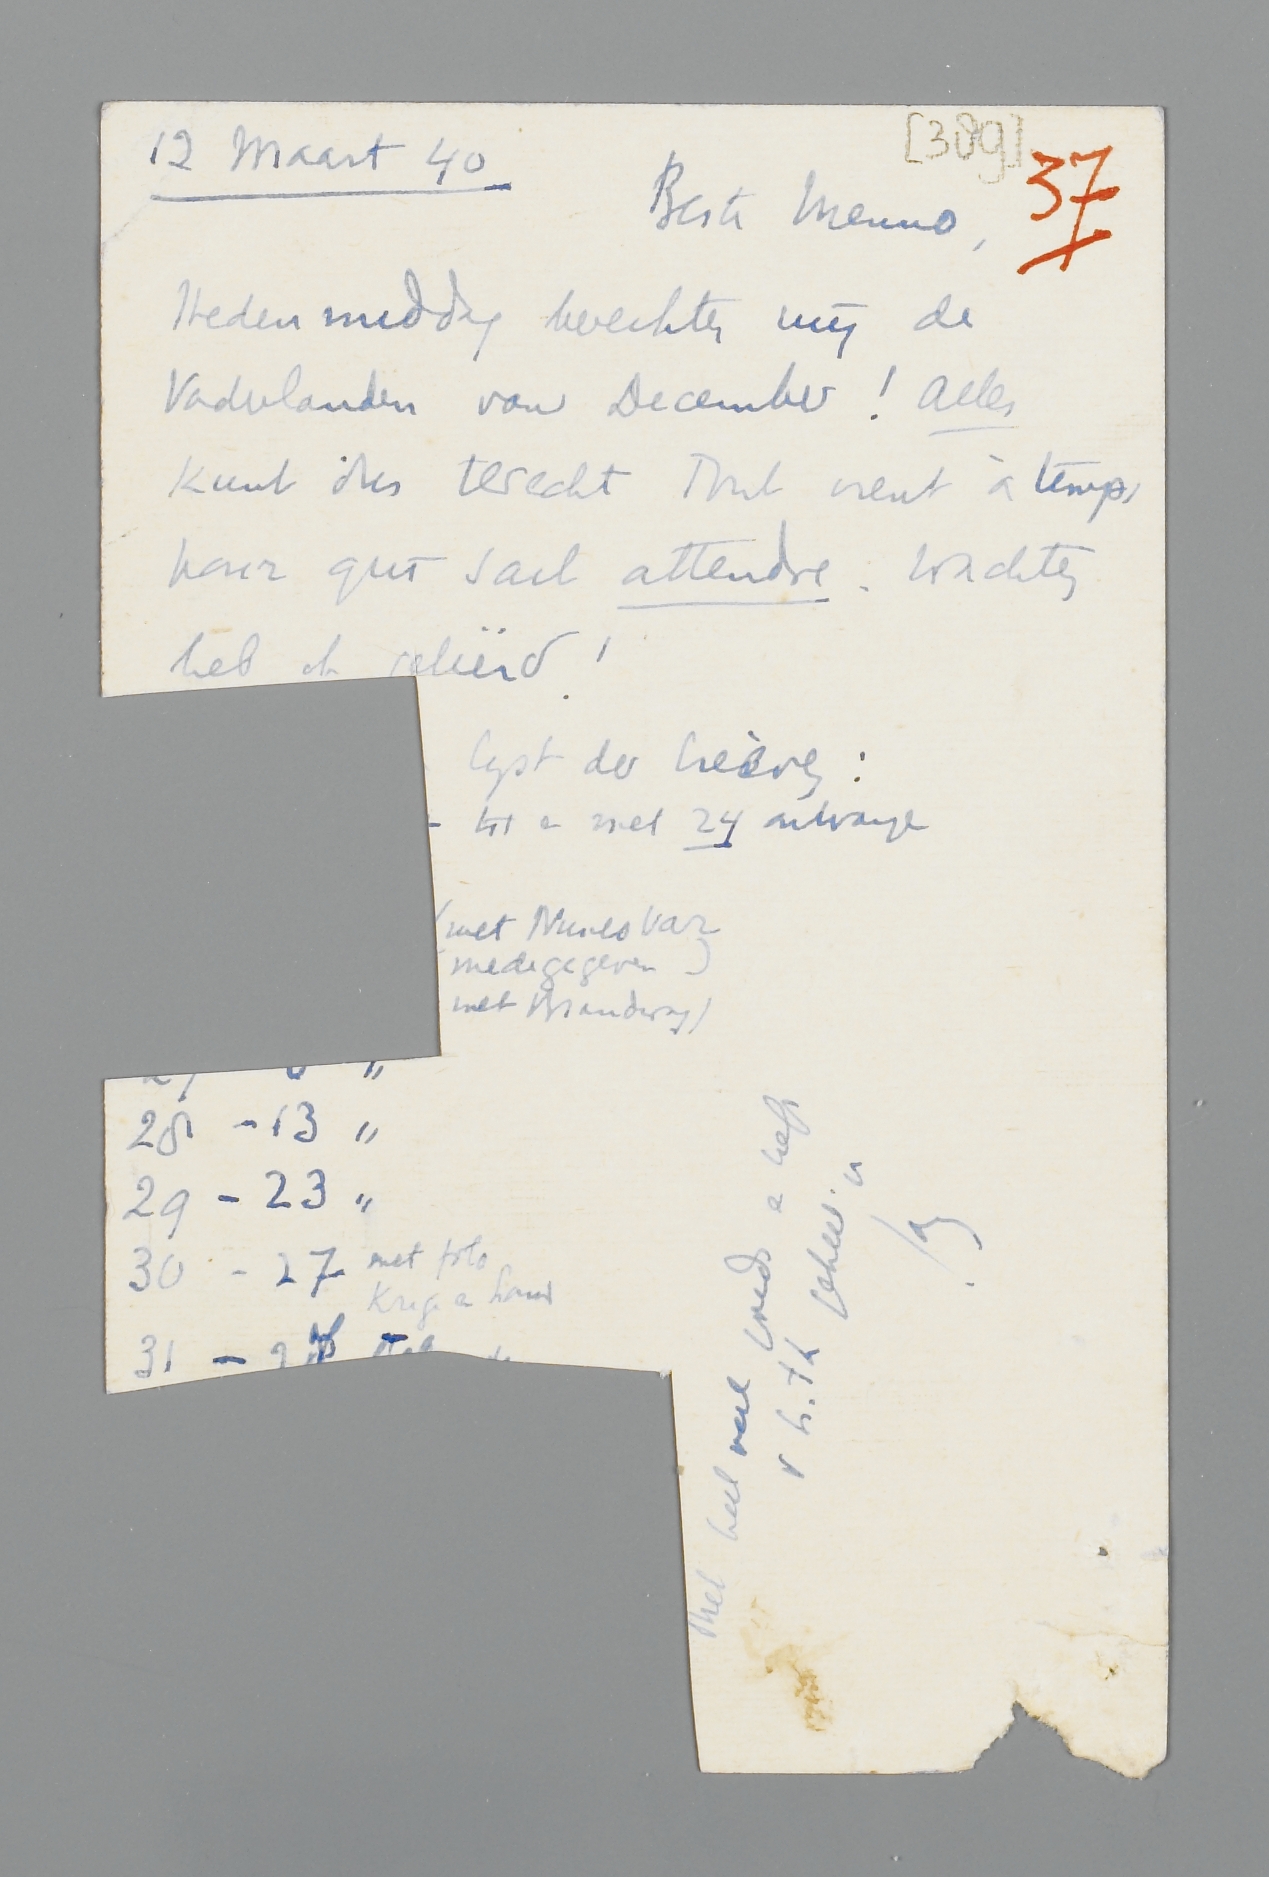 12 Maart 40
[389]
37
Beste Menno,
Heden middag bereikten mij de
Vaderlanden van December! Alles
Kunt dus terecht Tout vient à temps
pour qui sait attendre. Wachten
heb ik geleerd!
lijst der brieven:
- tot en met 24 ontvangen
(met Nunes Vaz
medegegeven)
met Brandweg)
27 - 6 "
28 - 13 "
29 - 23 "
30 - 27 met foto
Krige a
31 - 2
Met heel veel goeds a
v h. t h.